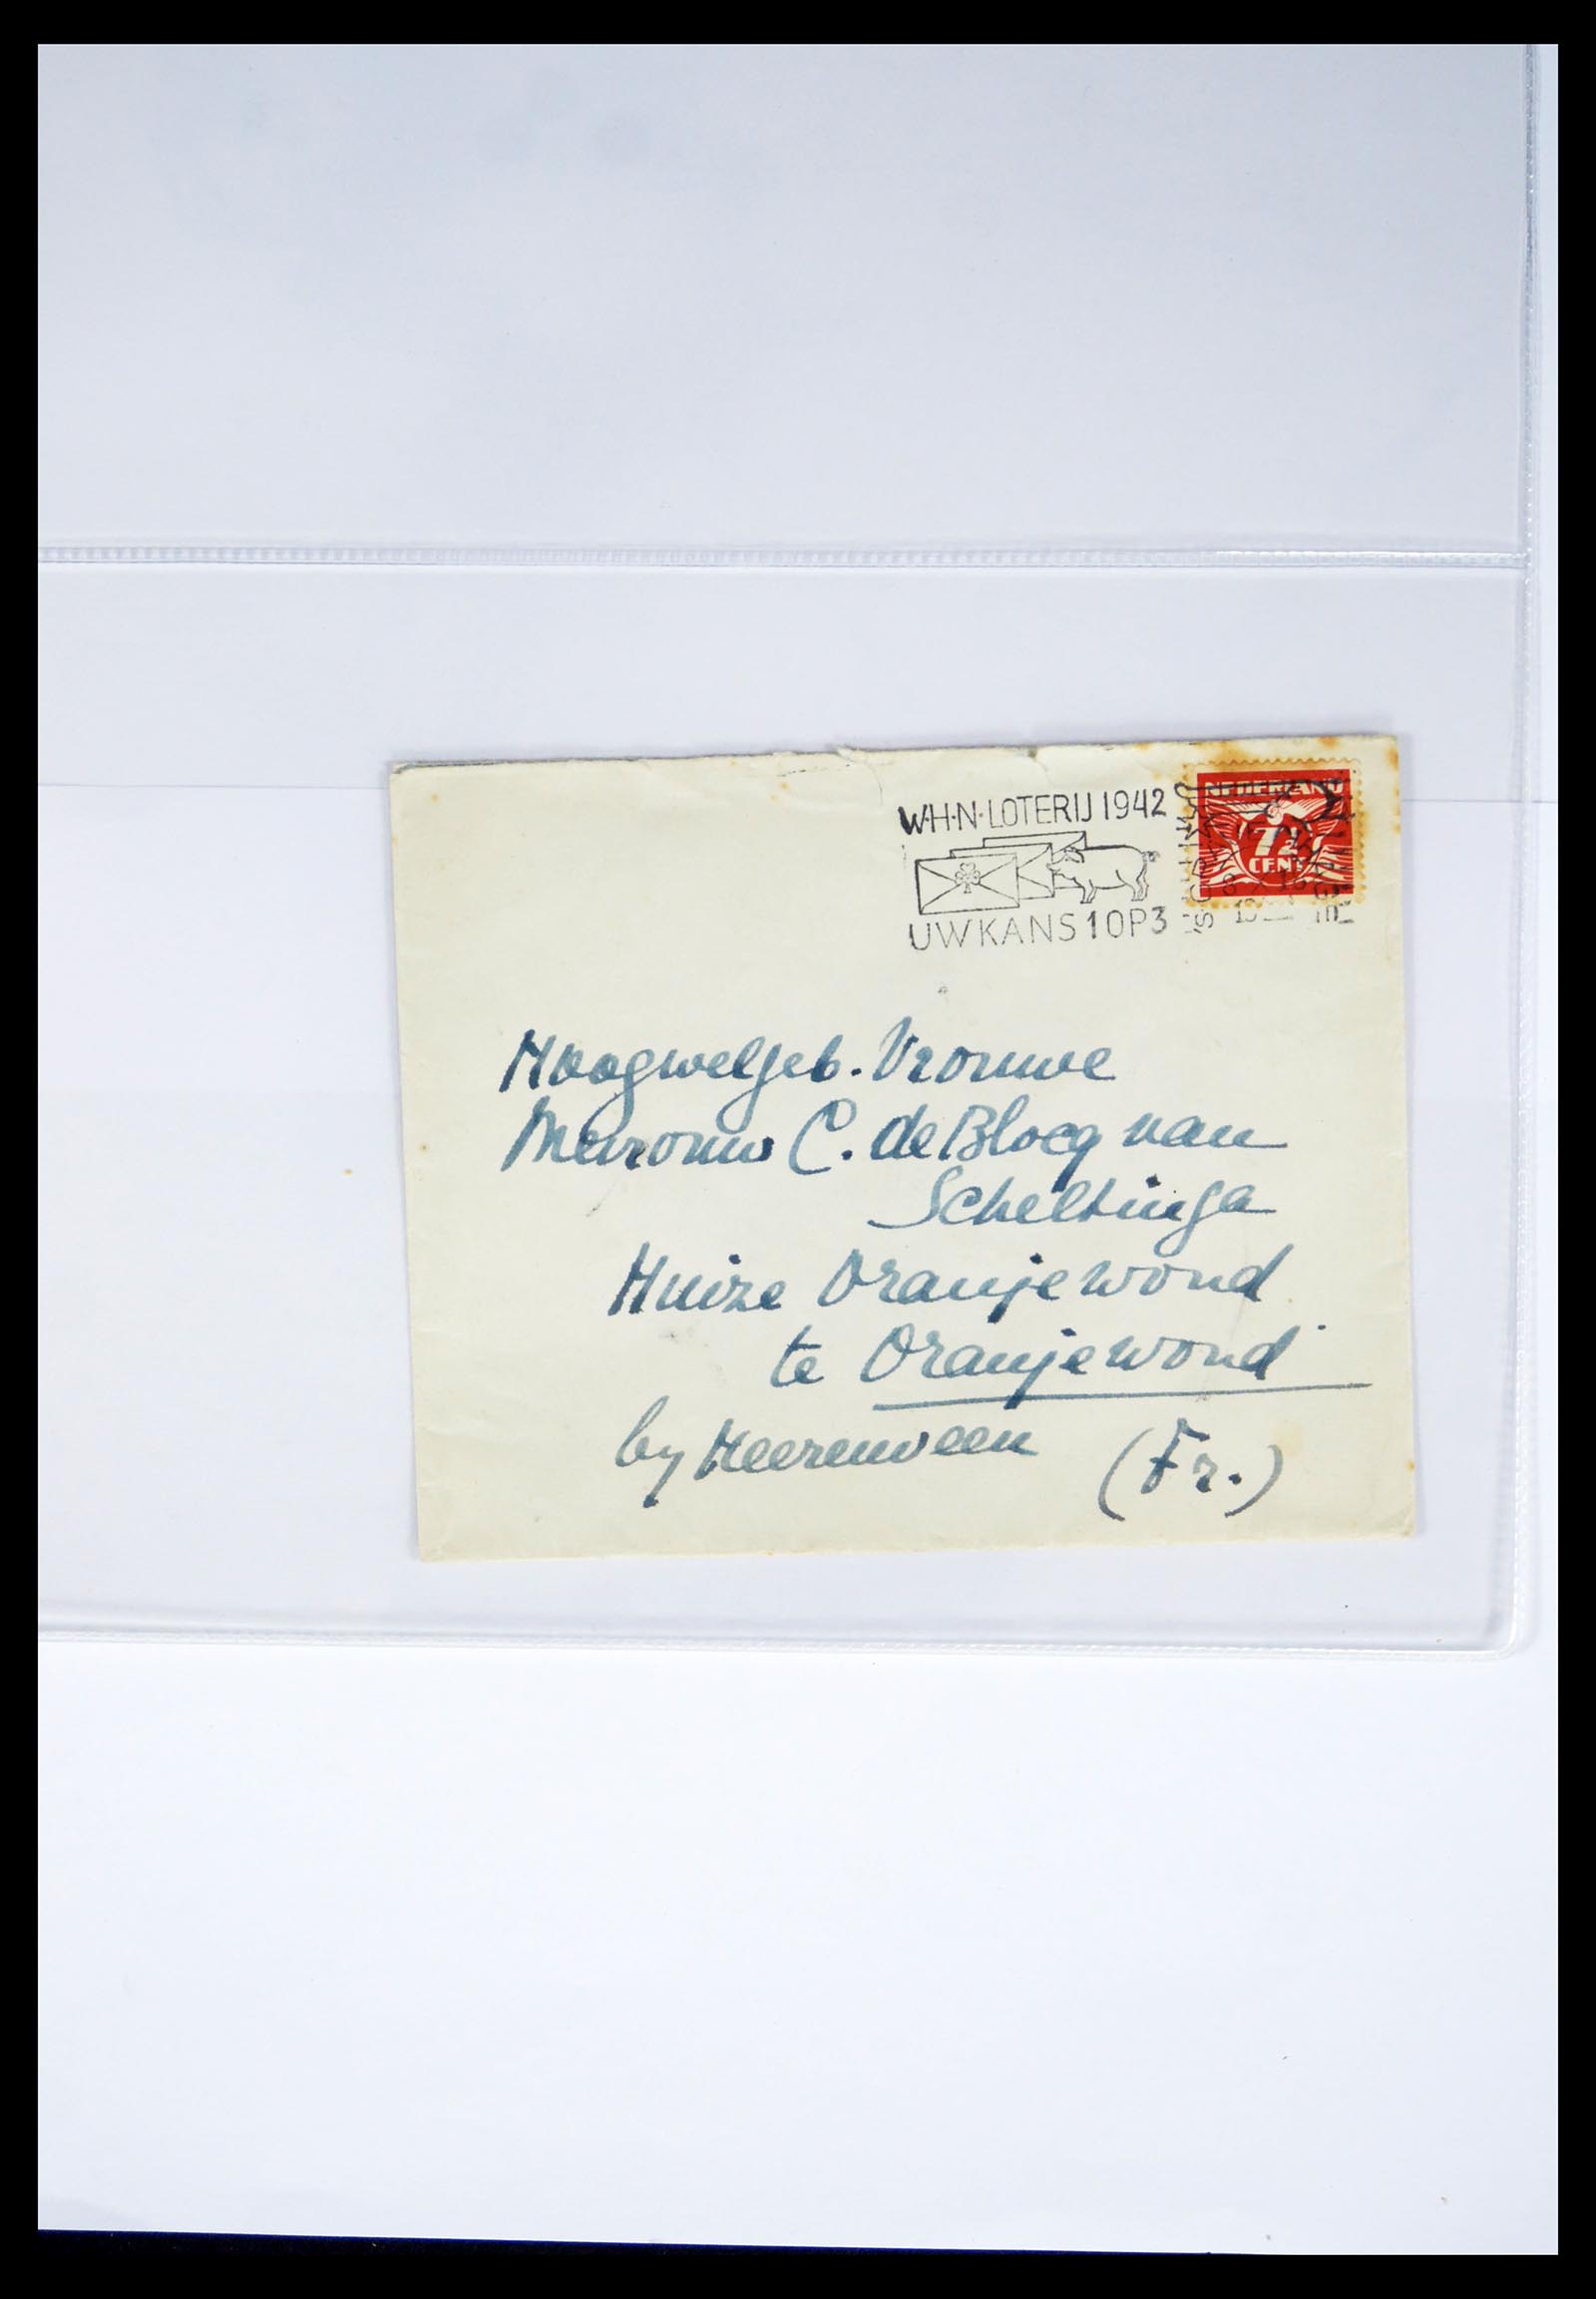 W·H·N·LOTERIJ 1942
UW KANS 1 OP 3
NEDERLAND
7½
CENT
Hoogwelgeb. Vrouwe
Mevrouw C. de Blocq van
Scheltinga
Huize Oranjewoud
te Oranjewoud
by Heerenveen (Fr.)